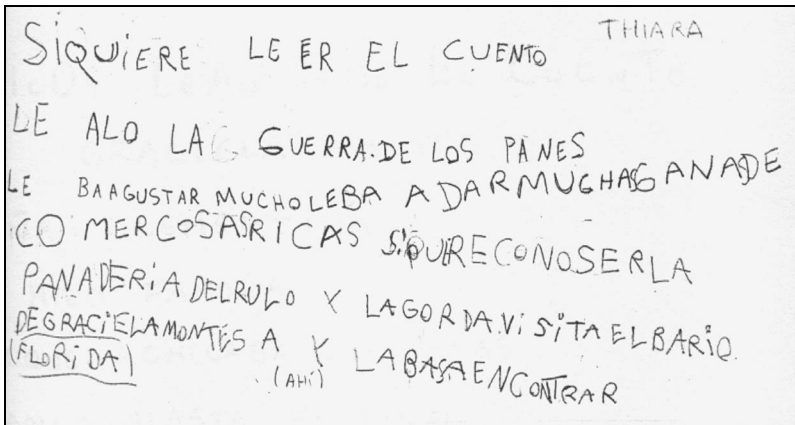 THIARA
SIQUIERE LE ER EL CUENTO
LE ALO LA GUERRA.DE LOS PANES
LE BAAGUSTAR MUCHOLEBA A DAR MUCHASGANADE
CO MERCOSASRICAS SIQUIRECONOSERLA
PANADERIA DELRULO Y LAGORDA.VISITAELBARIO.
DEGRACIELAMONTES A Y LABASAENCONTRAR
(FLORIDA) (AHI)